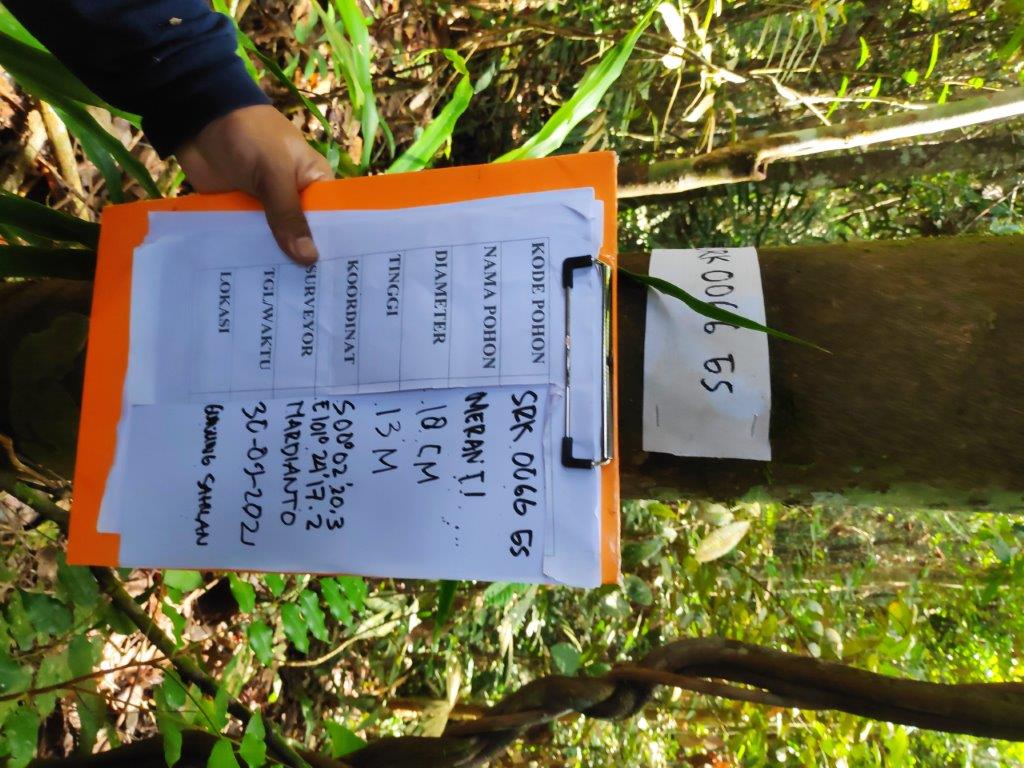 SRK 0066 GS
KODE POHON SRK 0066 GS
NAMA POHON MERANTI
DIAMETER 18 CM
TINGGI 13 M
KOORDINAT S 00° 02' 20.3
E 101° 24' 17.2
SURVEYOR MARDIANTO
TGL/WAKTU 30-09-2021
LOKASI GUNUNG SAHILAN